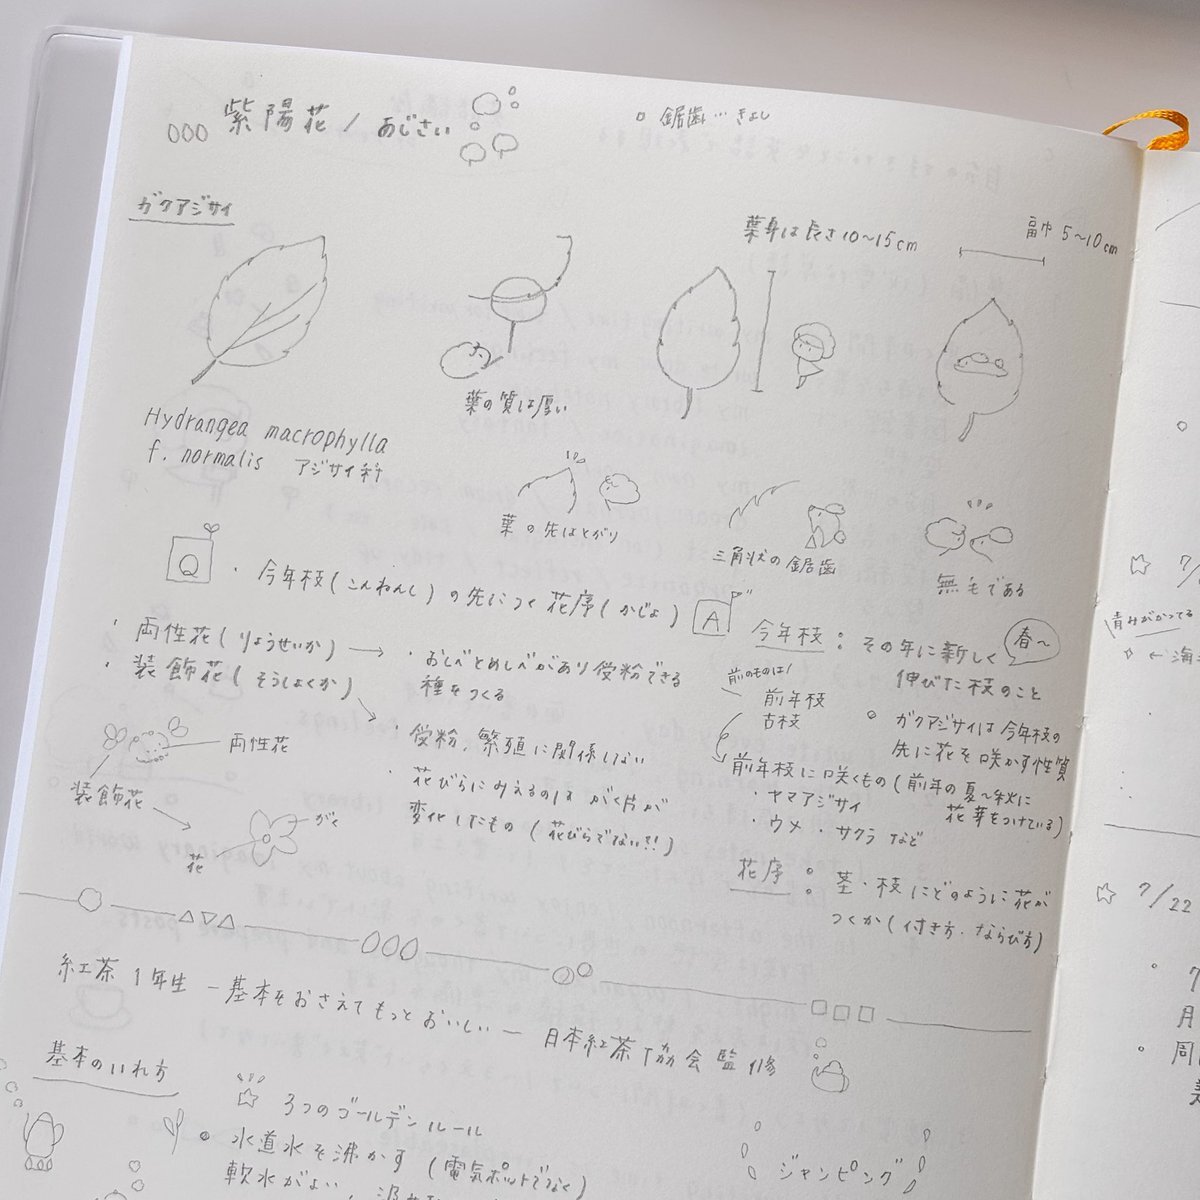 紫陽花 / あじさい
鋸歯…きょし
ガクアジサイ
葉身は長さ10〜15cm
幅 5〜10cm
葉の質は厚い
Hydrangea macrophylla
f. normalis アジサイ科
葉の先はとがり
三角状の鋸歯
無毛である
Q
・今年枝(こんねんし)の先につく花序(かじょ)
・両性花(りょうせいか)
・装飾花(そうしょくか)
・おしべとめしべがあり受粉できる
種をつくる
・受粉、繁殖に関係しない
・花びらにみえるのは がく片が
変化したもの(花びらでない!!)
両性花
装飾花
がく
花
A
今年枝:その年に新しく
伸びた枝のこと
春〜
前のものは!
前年枝
古枝
ガクアジサイは今年枝の
先に花を咲かす性質
前年枝に咲くもの(前年の夏〜秋に
花芽をつけている)
・ヤマアジサイ
・ウメ・サクラ など
花序:茎・枝にどのように花が
つくか(付き方・ならび方)
紅茶1年生 ー基本をおさえてもっとおいしいー 日本紅茶協会監修
基本のいれ方
☆ 3つのゴールデンルール
水道水を沸かす(電気ポットでなく)
軟水がよい、
ジャンピング
☆ 7/
青みがかってる
←海
☆ 7/22
7
月